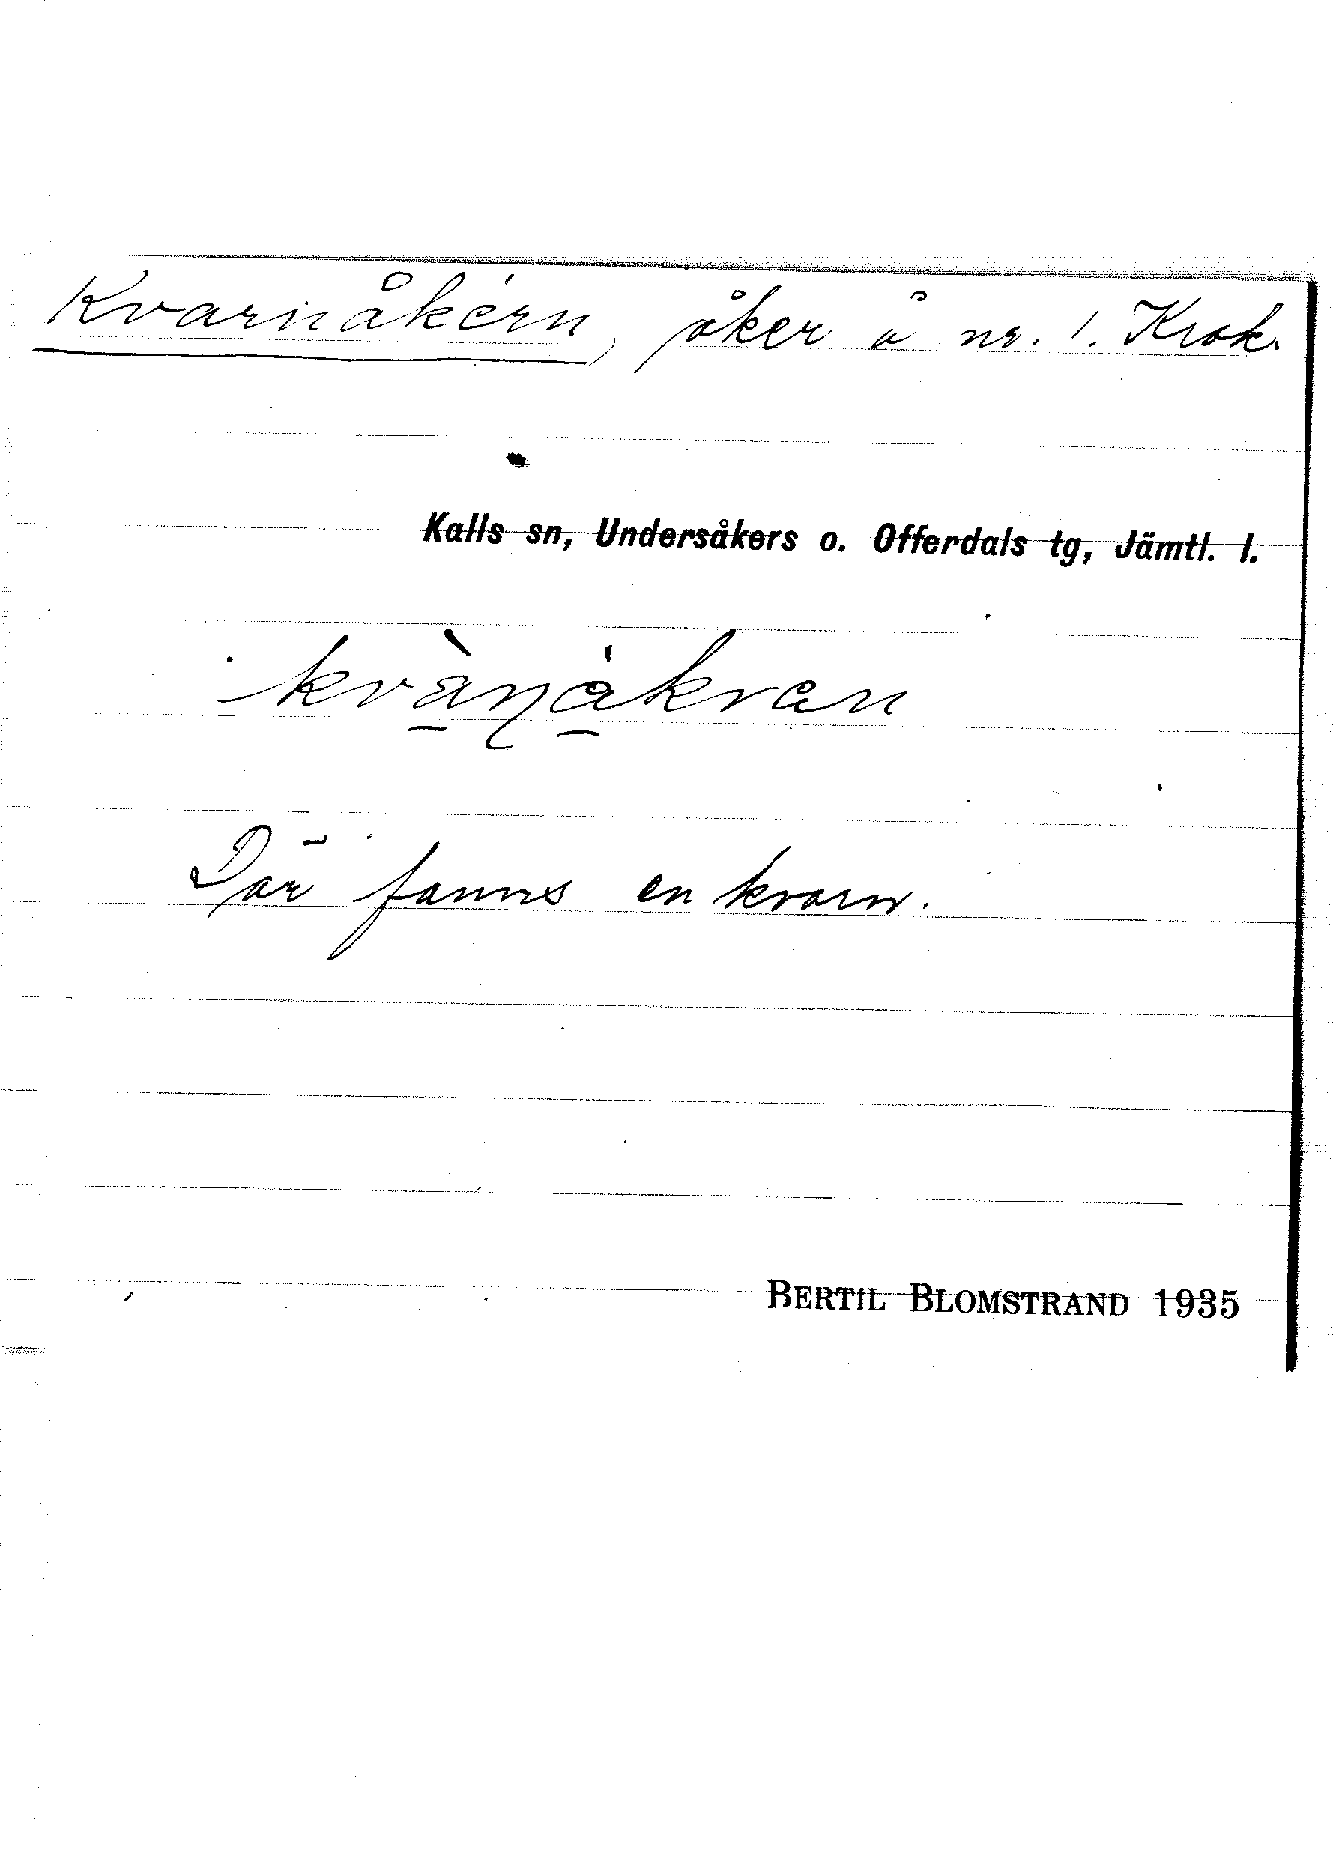 Kvarnåkern, åker å nr. 1. Krok.
Kalls sn, Undersåkers o. Offerdals tg, Jämtl. l.
kvàn̠åkran
Där fanns en kvarn.
BERTIL BLOMSTRAND 1935